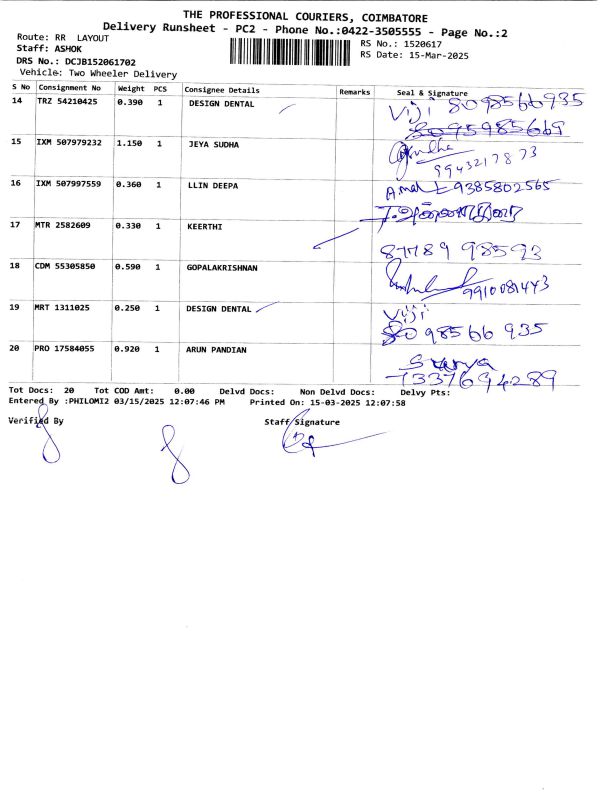 THE PROFESSIONAL COURIERS, COIMBATORE
Delivery Runsheet - PC2 - Phone No.:0422-3505555 - Page No.:2
Route: RR LAYOUT
Staff: ASHOK
DRS No.: DCJB152061702
Vehicle: Two Wheeler Delivery
RS No.: 1520617
RS Date: 15-Mar-2025
S No Consignment No Weight PCS Consignee Details Remarks Seal & Signature
14 TRZ 54210425 0.390 1 DESIGN DENTAL Viji 8098566935
15 IXM 507979232 1.150 1 JEYA SUDHA 9943217873
16 IXM 507997559 0.360 1 LLIN DEEPA 9385802565
17 MTR 2582609 0.330 1 KEERTHI 87789 98593
18 CDM 55305850 0.590 1 GOPALAKRISHNAN
19 MRT 1311025 0.250 1 DESIGN DENTAL Viji
8098566 935
20 PRO 17584055 0.920 1 ARUN PANDIAN Surya
7337694289
Tot Docs: 20 Tot COD Amt: 0.00 Delvd Docs: Non Delvd Docs: Delvy Pts:
Entered By :PHILOMI2 03/15/2025 12:07:46 PM Printed On: 15-03-2025 12:07:58
Verified By Staff Signature